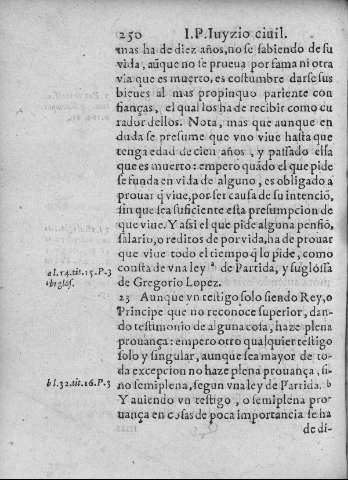 250 I.P.Iuyzio ciuil.
mas ha de diez años,no se sabiendo de su
vida, aūque no se prueua por fama ni otra
via que es muerto, es costumbre darse sus
bienes al mas propinquo pariente con
fianças, el qual los ha de recibir como cu
rador dellos. Nota, mas que aunque en
duda se presume que vno viue hasta que
tenga edad de cien años, y passado essa
que es muerto: emperò quādo el que pide
se funda en vida de alguno, es obligado a
prouar q̄ viue, por ser causa de su intenciō,
sin que sea suficiente esta presumpcion de
que viue. Y assi el que pide alguna pensiō,
salario, o reditos de por vida, ha de prouar
que viue todo el tiempo q̄ lo pide, como
consta de vna ley ª de Partida, y su glossa
a l.14.tit.15.P.3
ibi glos.
de Gregorio Lopez.
23 Aunque vn testigo solo siendo Rey, o
Principe que no reconoce superior, dan-
do testimonio de alguna cosa, haze plena
prouança: empero otro qualquier testigo
solo y singular, aunque sea mayor de to-
da excepcion no haze plena prouança, si-
no semiplena, segun vna ley de Partida. b
b l.32.tit.16.P.3
Y auiendo vn testigo, o semiplena pro-
uança en cosas de poca importancia se ha
de di-